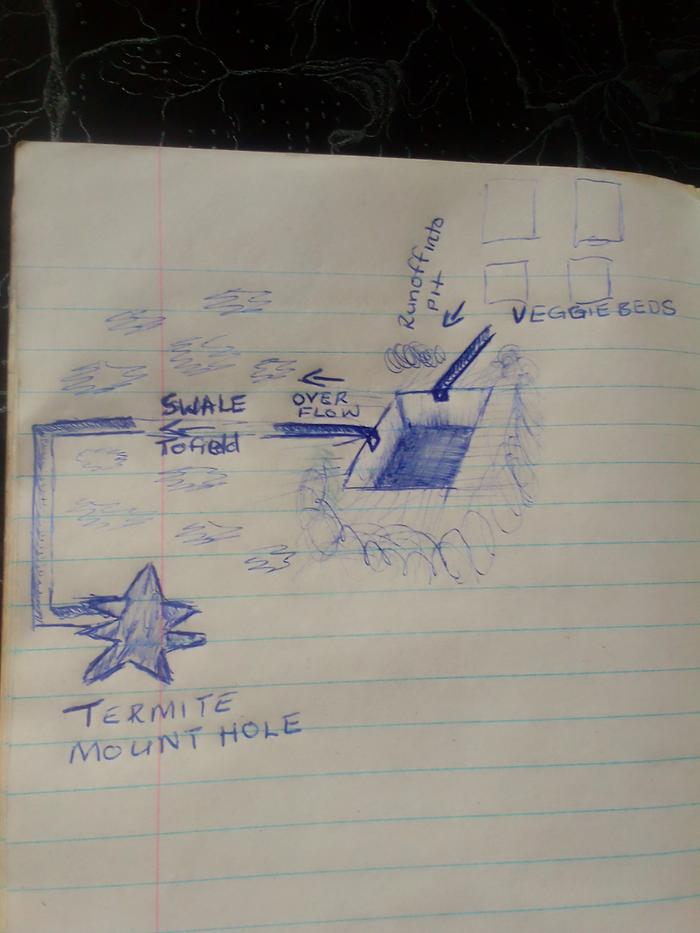 Runoff into
Pit
VEGGIE BEDS
OVER
FLOW
SWALE
To field
TERMITE
MOUNT HOLE